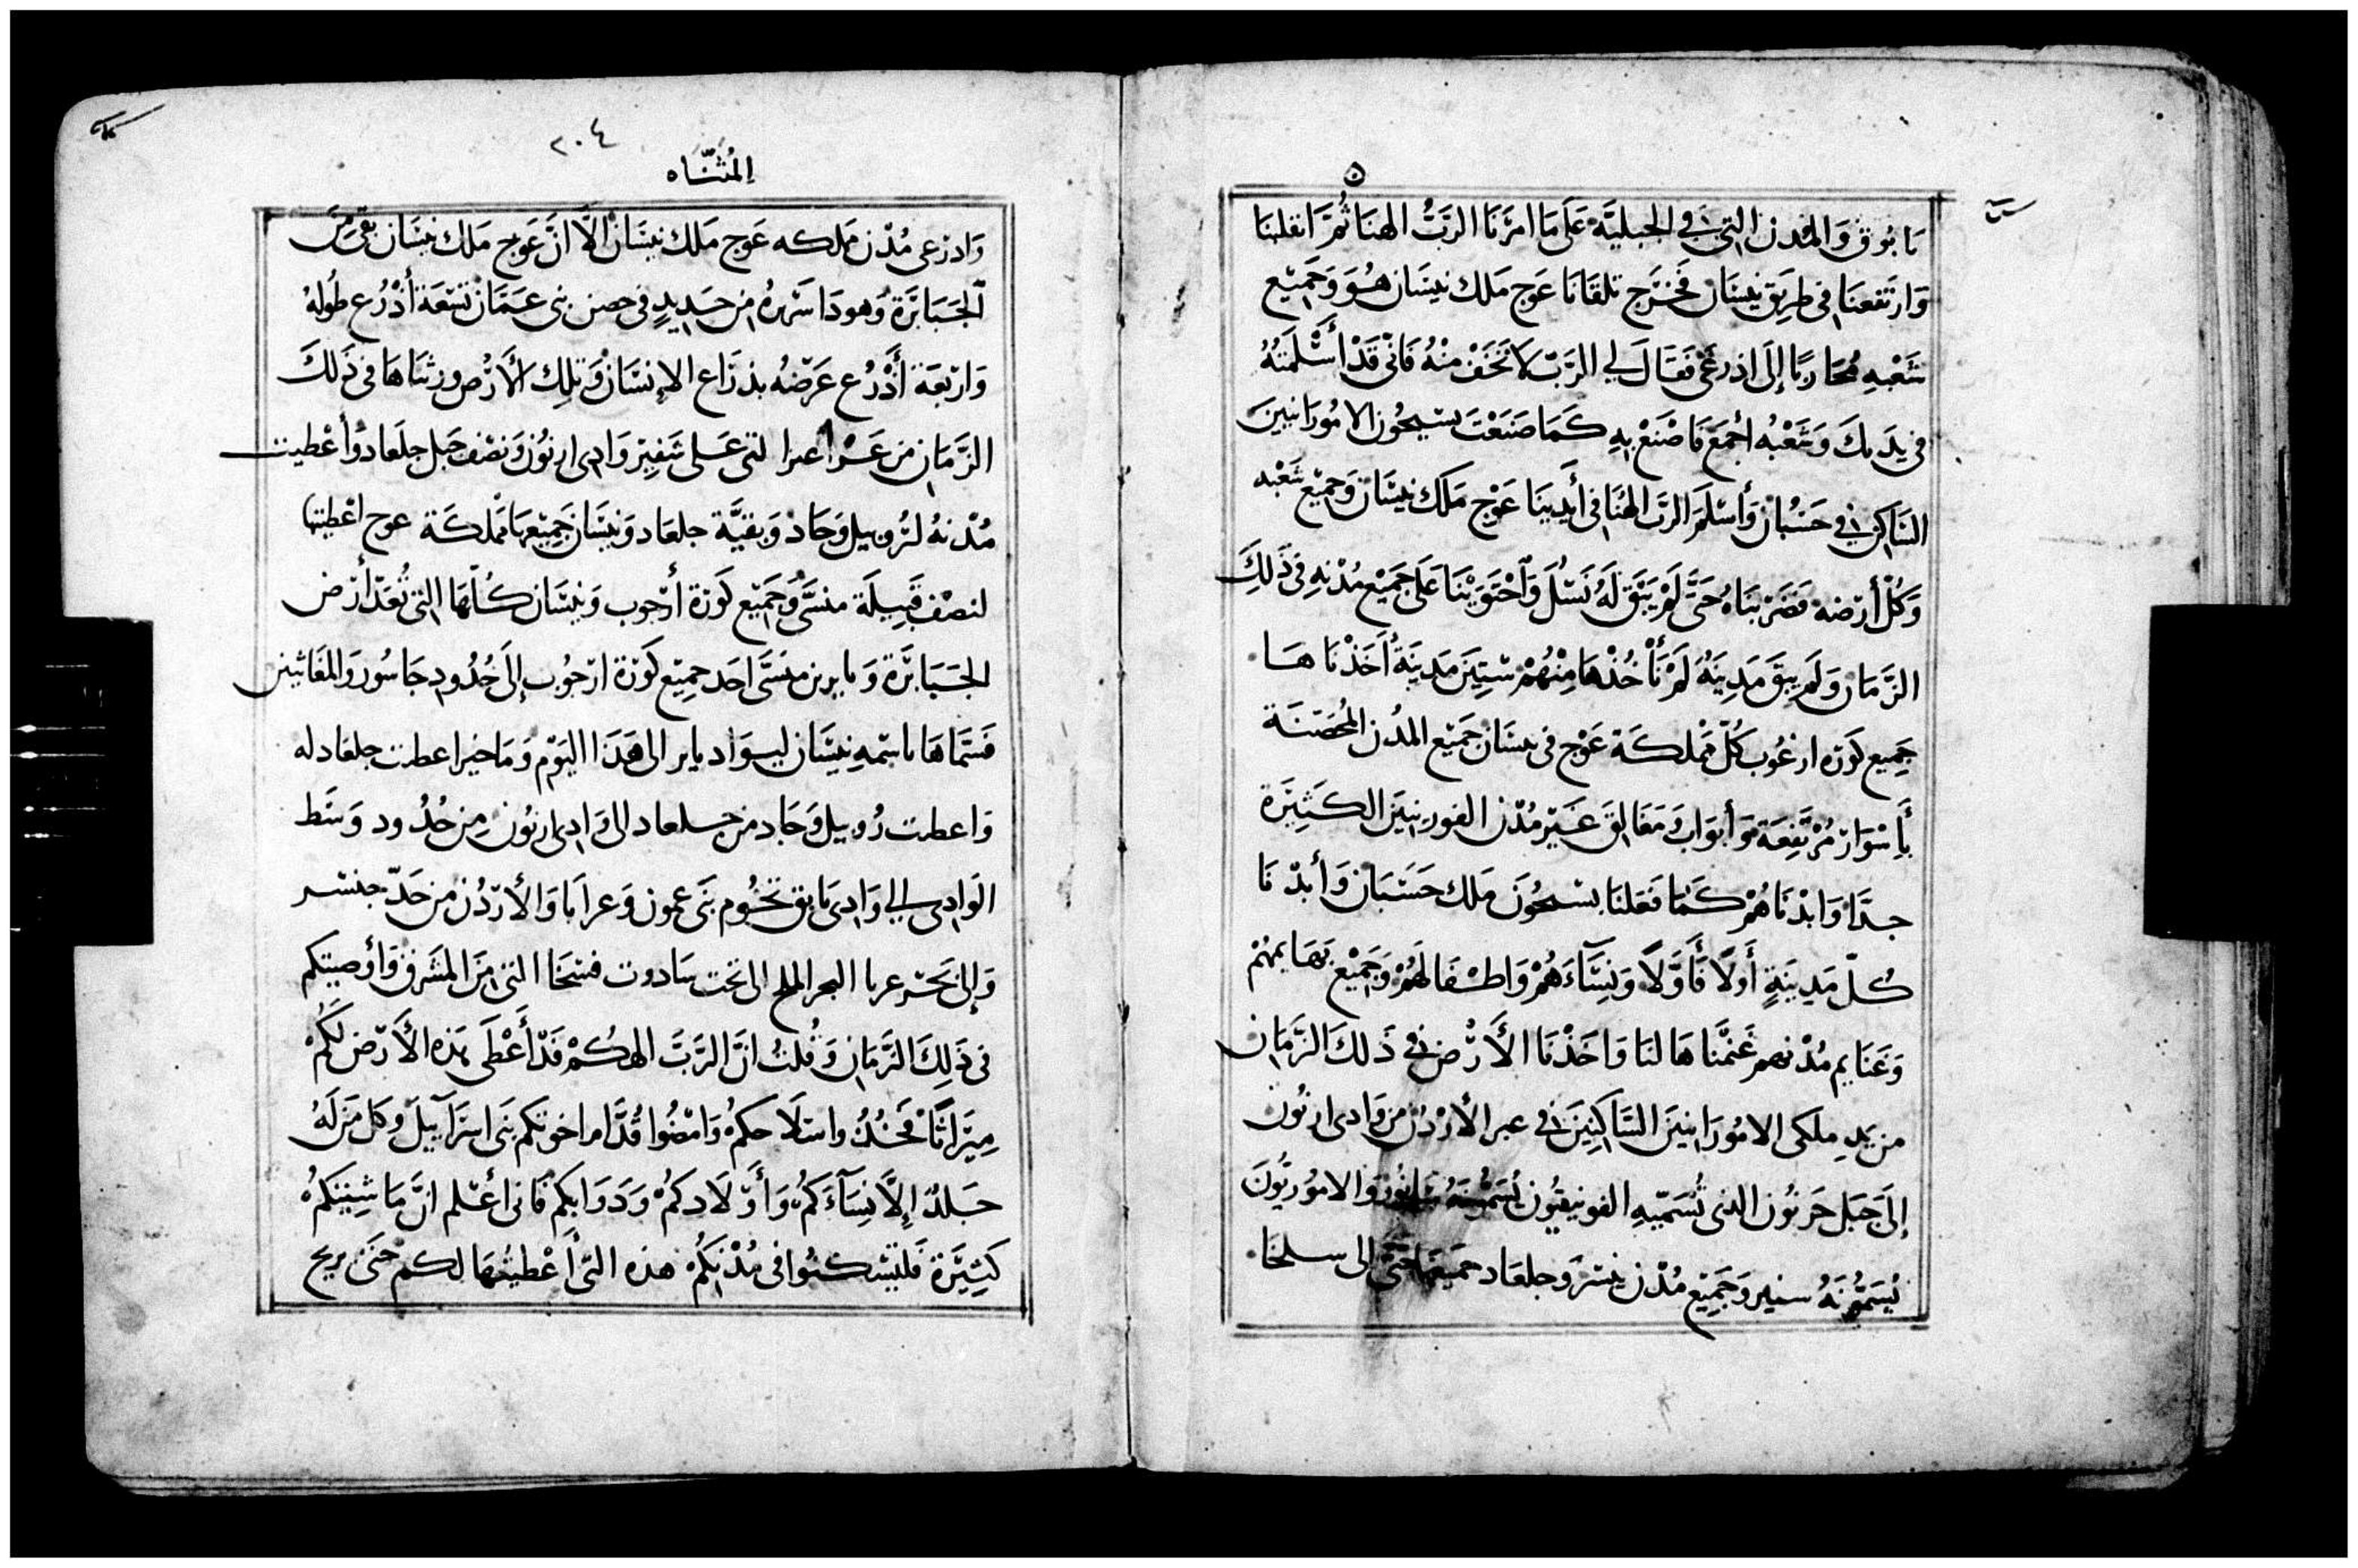 يَابُوق وَالمُدن التي في الجبليَّة عَلَى مَا امرَنَا الربُّ الهنَا ثُمَّ انقلبنَا
وَارتَفعنَا في طريق نيسَان فخَرَج تلقَانَا عَوج مَلك نيسَان هُوَ وَجَميع
شَعْبهِ مُحَاربًا إلَى اذرعَى فَقَالَ لي الربّ لَا تَخَفْ منْهُ فَانّى قَدْ أَسْلَمتهُ
في يدَيكَ وَشَعْبُه أجْمَع فَاصْنَعْ بهِ كَمَا صَنَعْتَ بسيحُون الامُورَانيينَ
السَاكن في حَسْبُان وَأسْلَمَ الربّ الهُنَا في أيدينَا عَوْج مَلك نيسَان وَجميْع شَعْبه
وَكُلّ أرْضه فضَرَبنَاهُ حَتَّى لَمْ يَبْق لَهُ نَسْلَ وَاحْتَوَيْنَا عَلَى جَميْع مُدْنهِ في ذَلكَ
الزَّمَان وَلَم يبقَ مَدِينَهُ لَمْ نَأْخُذْهَا مِنْهُمْ سِتِّينَ مَدينَةً اَخَذْنَا هَا
جَميع كَورَه ارغُوب كلّ مَمْلكَة عَوْج في نيسَان جَميْع المدُن المُحَصَنَة
بِأَسْوَار مُرْتَفِعَة وَأبوَاب وَمَغَالق غَيْر مُدْن الفورينيينَ الكَثِيرَة
جدًّا وَابدْنَاهُمْ كَمَا فَعَلنَا بسيحُونَ مَلك حَسَبَان وَأبدْنَا
كُلّ مَدِينَةٍ أَولًا فَأَوَّلًا وَنِسَآءَهُمْ وَاطفَالهُمْ وَجَمِيْع بَهَايمهُمْ
وَغَنَايم مُدْنهم غَنمْنَا هَا لنَا وَاخَذْنَا الأَرْض في ذَلكَ الزَّمَان
من يَدِ مَلكى الامُورَانيينَ السَّاكِنِينَ في عبر الأرْدُن من وَادى ارنُون
إلَى جَبَل حَرنُون الذى تُسَمّيهِ الفونيقيُون وَالامُوريُّونَ
يُسَمُّونَهُ سنير وَجَميْع مُدْن وَجلعَاد جميعهَا حَتَّى الى سلخَا
٢٠٤
المُثنَّاه
وَادرعى مُدْن مملكه عَوج مَلك نيسَان الَّا انَّ عَوج مَلك نيسَان بَقى مِنَ
الجَبَابرَة وَهودَا سَريرهُ من حَدِيدٍ في حصن بنى عَمَّان تسْعَة أذْرُع طُولهُ
وَارْبَعَة أَذْرُع عَرْضهُ بذرَاع الإِنسَان وَتلِك الأَرْض ورثنَاهَا في ذَلكَ
الزَّمَان من عَرْاعيرا لتى عَلى شَفِير وَادى ارنُون وَنصْف جَبَل جلعَاد وأعْطيت
مُدْنهُ لرُوبيل وَجَادْ وَبقيَّة جلعَاد وَنيسَان جَميْعهَا مَملكَة عوج اعْطيتها
لنصْف قَبِيلَة منسَّى وَجَميْع كَورَة أرجوب وَنيسَان كُلّهَا التي تُعَدّ أرْض
الجَبَابرَة وَيايرين منسَّى اخَد جميْع كَورَة ارْجُوب إلَى حُدُود جَاسُور وَالمَعَاتيين
فَسَمَّاهَا باسْمهِ نيسَان ليسوَاد ياير الى هَذَا اليَوْم وَمَاخير اعطيت جلعاد له
وَاعطيت رُوبيل وَجَاد من جلعاد الى وَادى ارنُون مِن حُدُود وَسَط
الوَادى الي وَادى يَابق تَخُوم بَنَى عمون وَعرابَا وَالأردُن من حَدّ
وَإلى بَحْر عربا البحر الملح الى تحت سَادوت فسخَا التى مِنَ المشَرق وَأوْصيتكم
في ذَلِكَ الزَّمَان وَقُلتُ انَّ الربَّ الهكُمْ قَدْ أَعْطَى هَذه الأَرْض لَكُمْ
مِيرَاثًا فَخُذُوا سلَاحكمْ وَامْضُوا قُدَّام اخوتكم بَنَى اسرَآييلَ وكل مَن لَهُ
جَلدٌ إِلَّا نِسَآءَكُمْ وَأَوْلَادكمْ وَدَوَابكِم فَانى أعْلم انَّ مَاشِيَتكمْ
كَثِيرَة فَليَسْكنُوا في مُدْنكُمْ هذه التي أَعْطيتُهَا لكم حَتى يريح